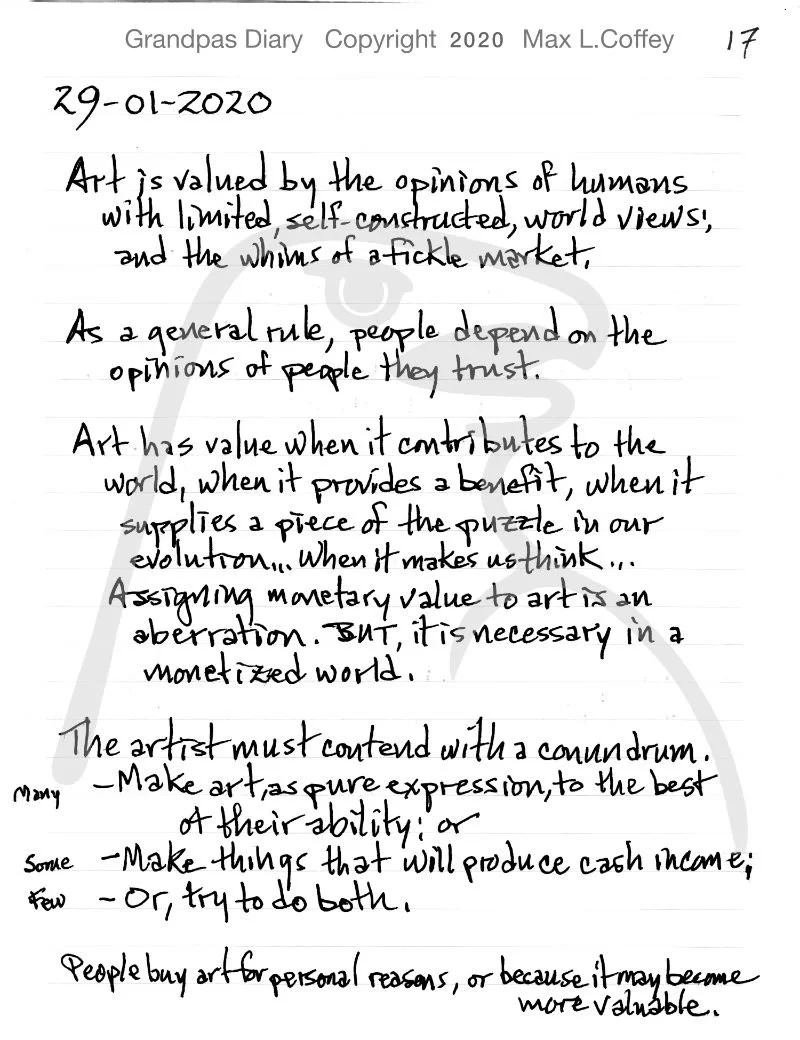 Grandpas Diary Copyright 2020 Max L.Coffey 17
29-01-2020
Art is valued by the opinions of humans
with limited, self-constructed, world views,
and the whims of a fickle market.
As a general rule, people depend on the
opinions of people they trust.
Art has value when it contributes to the
world, when it provides a benefit, when it
supplies a piece of the puzzle in our
evolution... When it makes us think...
Assigning monetary value to art is an
aberration. BUT, it is necessary in a
monetized world.
The artist must contend with a conundrum.
Many - Make art, as pure expression, to the best
of their ability; or
Some - Make things that will produce cash income;
Few - Or, try to do both.
People buy art for personal reasons, or because it may become
more valuable.